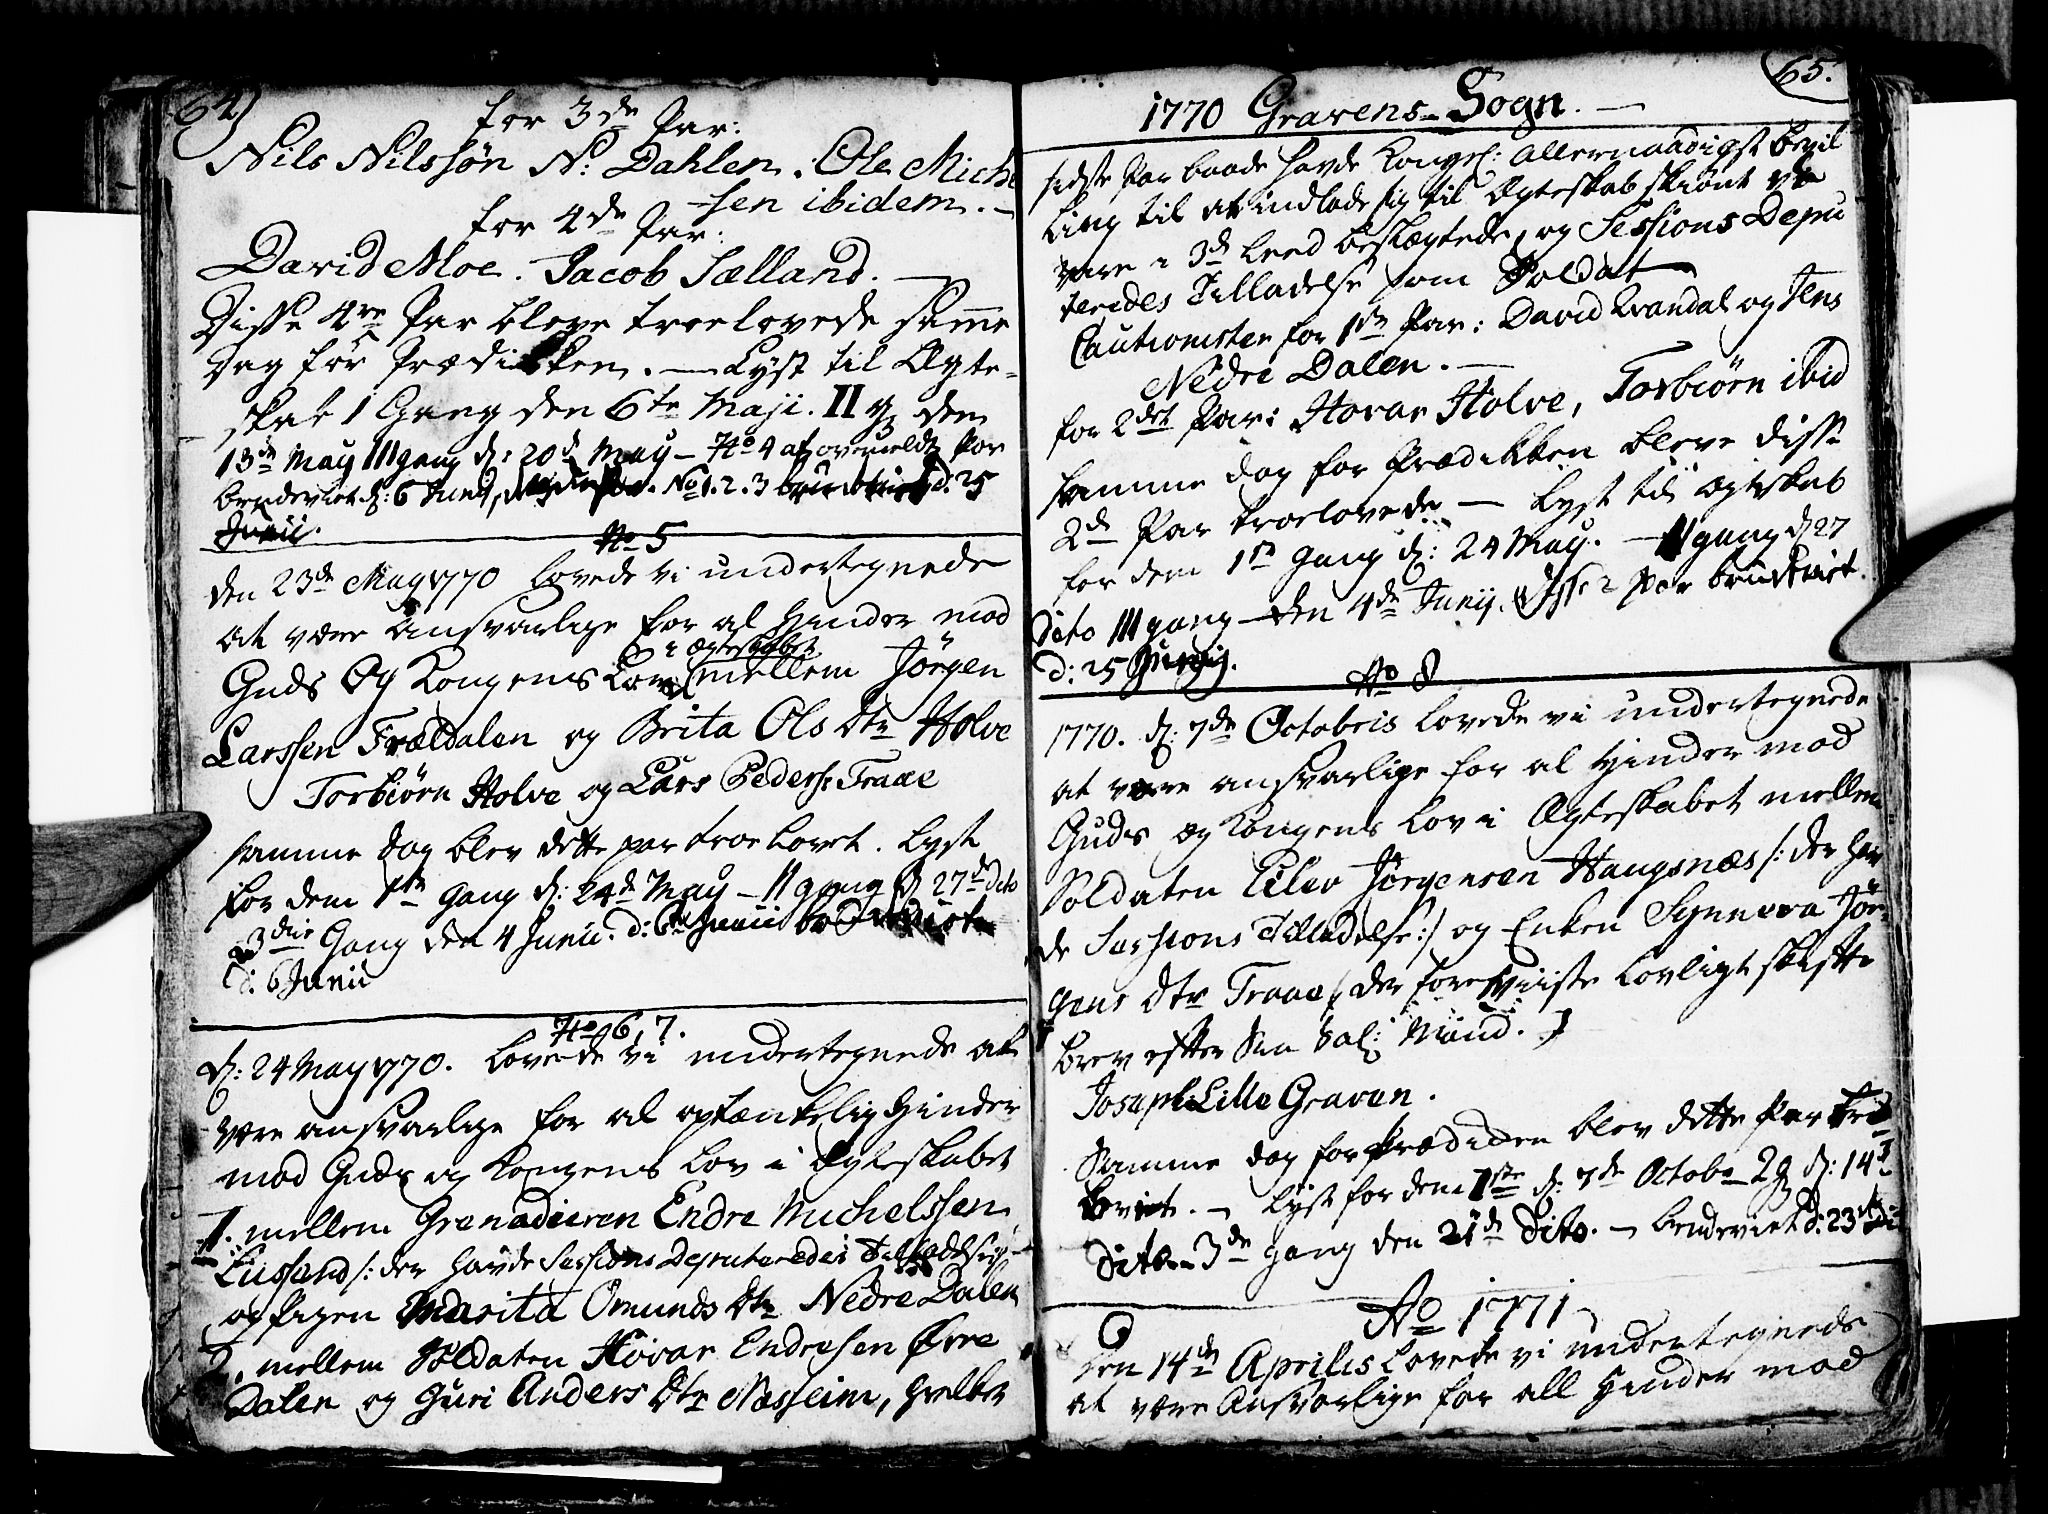 64)
for 3de Par:
Nils Nilssøn N: Dahlen. Ole Miche
sen ibidem. –
for 4de Par:
David Moe. Jacob Sælland. —
Disse 4re Par bleve troelovede samme
Dag før Prædikken. — Lyst til Ægte-
skab 1 Gang den 6te Maji. II g den
13de May III gang d: 20de May – No 4 af ovenmeldte Par
brudeviet d: 6 Junij, No 1. 2. 3 d. 25
Junii.
No 5
den 23de May 1770 lovede vi undertegnede
at være Ansvarlige for al Hinder mod
Guds Og Kongens Lov i Ægteskabet mellem Jörgen
Larssen Frældalen og Brita Ols dtr Holve
Torbiörn Holve og Lars Peders: Traae
samme dag blev dette par troelovet. Lyst
for dem 1ste Gang d: 24de May – II gang d 27de dito
3die Gang den 4 Junii. d: 6te Junii
d: 6 Junii
No 6, 7.
d: 24 May 1770. lovede vi undertegnede at
være ansvarlige for al optænkelig Hinder
mod Guds og Kongens Lov i Ægteskabet
1. mellem Grenadieren Endre Michelssen
Lussand /: der havde Sessions Deputeredes Tilladelse
og Pigen Marita Omunds dtr Nedre Dalen
2. mellem Soldaten Hovar Endresen Øvre
Dalen og Guri Anders dtr Næsheim, hvilket
65.
1770 Gravens Sogn. —
sidste Par baade havde Kongel: Allernaadigst bevil
ling til at indlade sig til Ægteskab skiønt de
vare i 3de Leed beslægtede, og Sessions Depu
teredes Tilladelse som Soldat
Cautionister for 1ste Par: David Kvandal og Jens
Nedre Dalen. —
for 2det Par: Hovar Holve, Torbiörn ibid
samme dag for Prædikken bleve disse
2de Par troelovede — Lyst til Ægteskab
for dem 1ste Gang d: 24 May. — II gang d 27
dito III gang – den 4de Junij. disse 2 Par brudeviet.
d: 25 Junij.
No 8
1770. d: 7de Octobris lovede vi undertegnede
at være ansvarlige for al Hinder mod
Guds og Kongens Lov i Ægteskabet mellem
Soldaten Eilev Jörgensen Haugsnæs /: der hav
de Sessions Tilladelse :/ og Enken Synneva Jör
gens dtr Traae /: der foreviiste lovligt skifte
brev efter Sin Sal: Mand.
Joseph Lille Graven.
Samme dag for Prædiken blev dette Par troe
lovet. – Lyst for dem 1ste d: 7de Octobr 2 g d: 14de
dito – 3de gang den 21de dito. – brudeviet d: 23de dito
Ao 1771
den 14de Aprilis lovede vi undertegnede
at være Ansvarlige for all Hinder mod